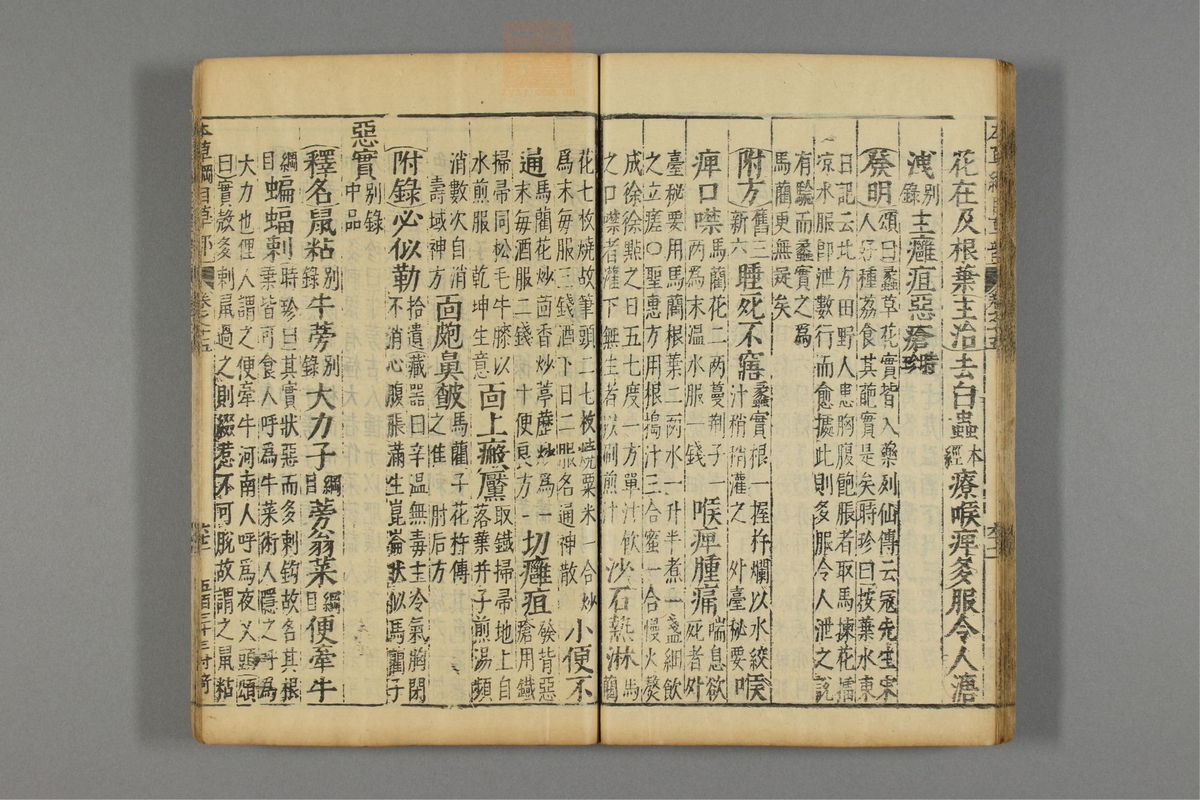 花在及根葉主治去白蟲本經療喉痺多服令人溏
洩別錄主癰疽惡瘡時珍
發明頌曰蠡草花實皆入藥列仙傳云寇先生宋
人好種荔食其葩實是矣時珍曰按葉水東
日記云北方田野人患胸腹飽脹者取馬揀花擂
凉水服卽泄數行而愈據此則多服令人泄之說
有驗而蠡實之爲
馬藺更無疑矣
附方舊三新六睡死不寤蠡實根一握杵爛以水絞汁稍稍灌之外臺秘要喉
痺口噤馬藺花二兩蔓荆子一兩爲末温水服一錢喉痺腫痛喘息欲死者外
臺秘要用馬藺根葉二兩水一升半煮一盞細飲
之立瘥○聖惠方用根搗汁三合蜜一合慢火熬
成徐徐點之日五七度一方單汁飲
之口噤者灌下無生者以刷煎汁沙石熱淋馬藺
花七枚燒故筆頭二七枚燒粟米一合炒
爲末每服三錢酒下日二服名通神散小便不
通馬藺花炒茴香炒葶藶炒爲末每酒服二錢十便良方一切癰疽發背惡瘡用鐵
掃帚同松毛牛膝以水煎服乾坤生意面上瘢黶取鐵掃帚地上自落葉并子煎湯頻
消數次自消壽域神方面皰鼻皶馬藺子花杵傅之佳肘后方
附錄必似勒拾遺藏器曰辛温無毒主冷氣胸閉
不消心腹脹滿生崑崙狀似馬藺子
惡實別錄中品
釋名鼠粘別錄牛蒡別錄大力子綱目蒡翁菜綱目便牽牛
綱目蝙蝠刺時珍曰其實狀惡而多刺鈎故名其根
葉皆可食人呼爲牛菜術人隱之呼爲
大力也俚人謂之便牽牛河南人呼爲夜叉頭頌
曰實殼多刺鼠過之則綴惹不可脫故謂之鼠粘
本草綱目草部 卷之十五